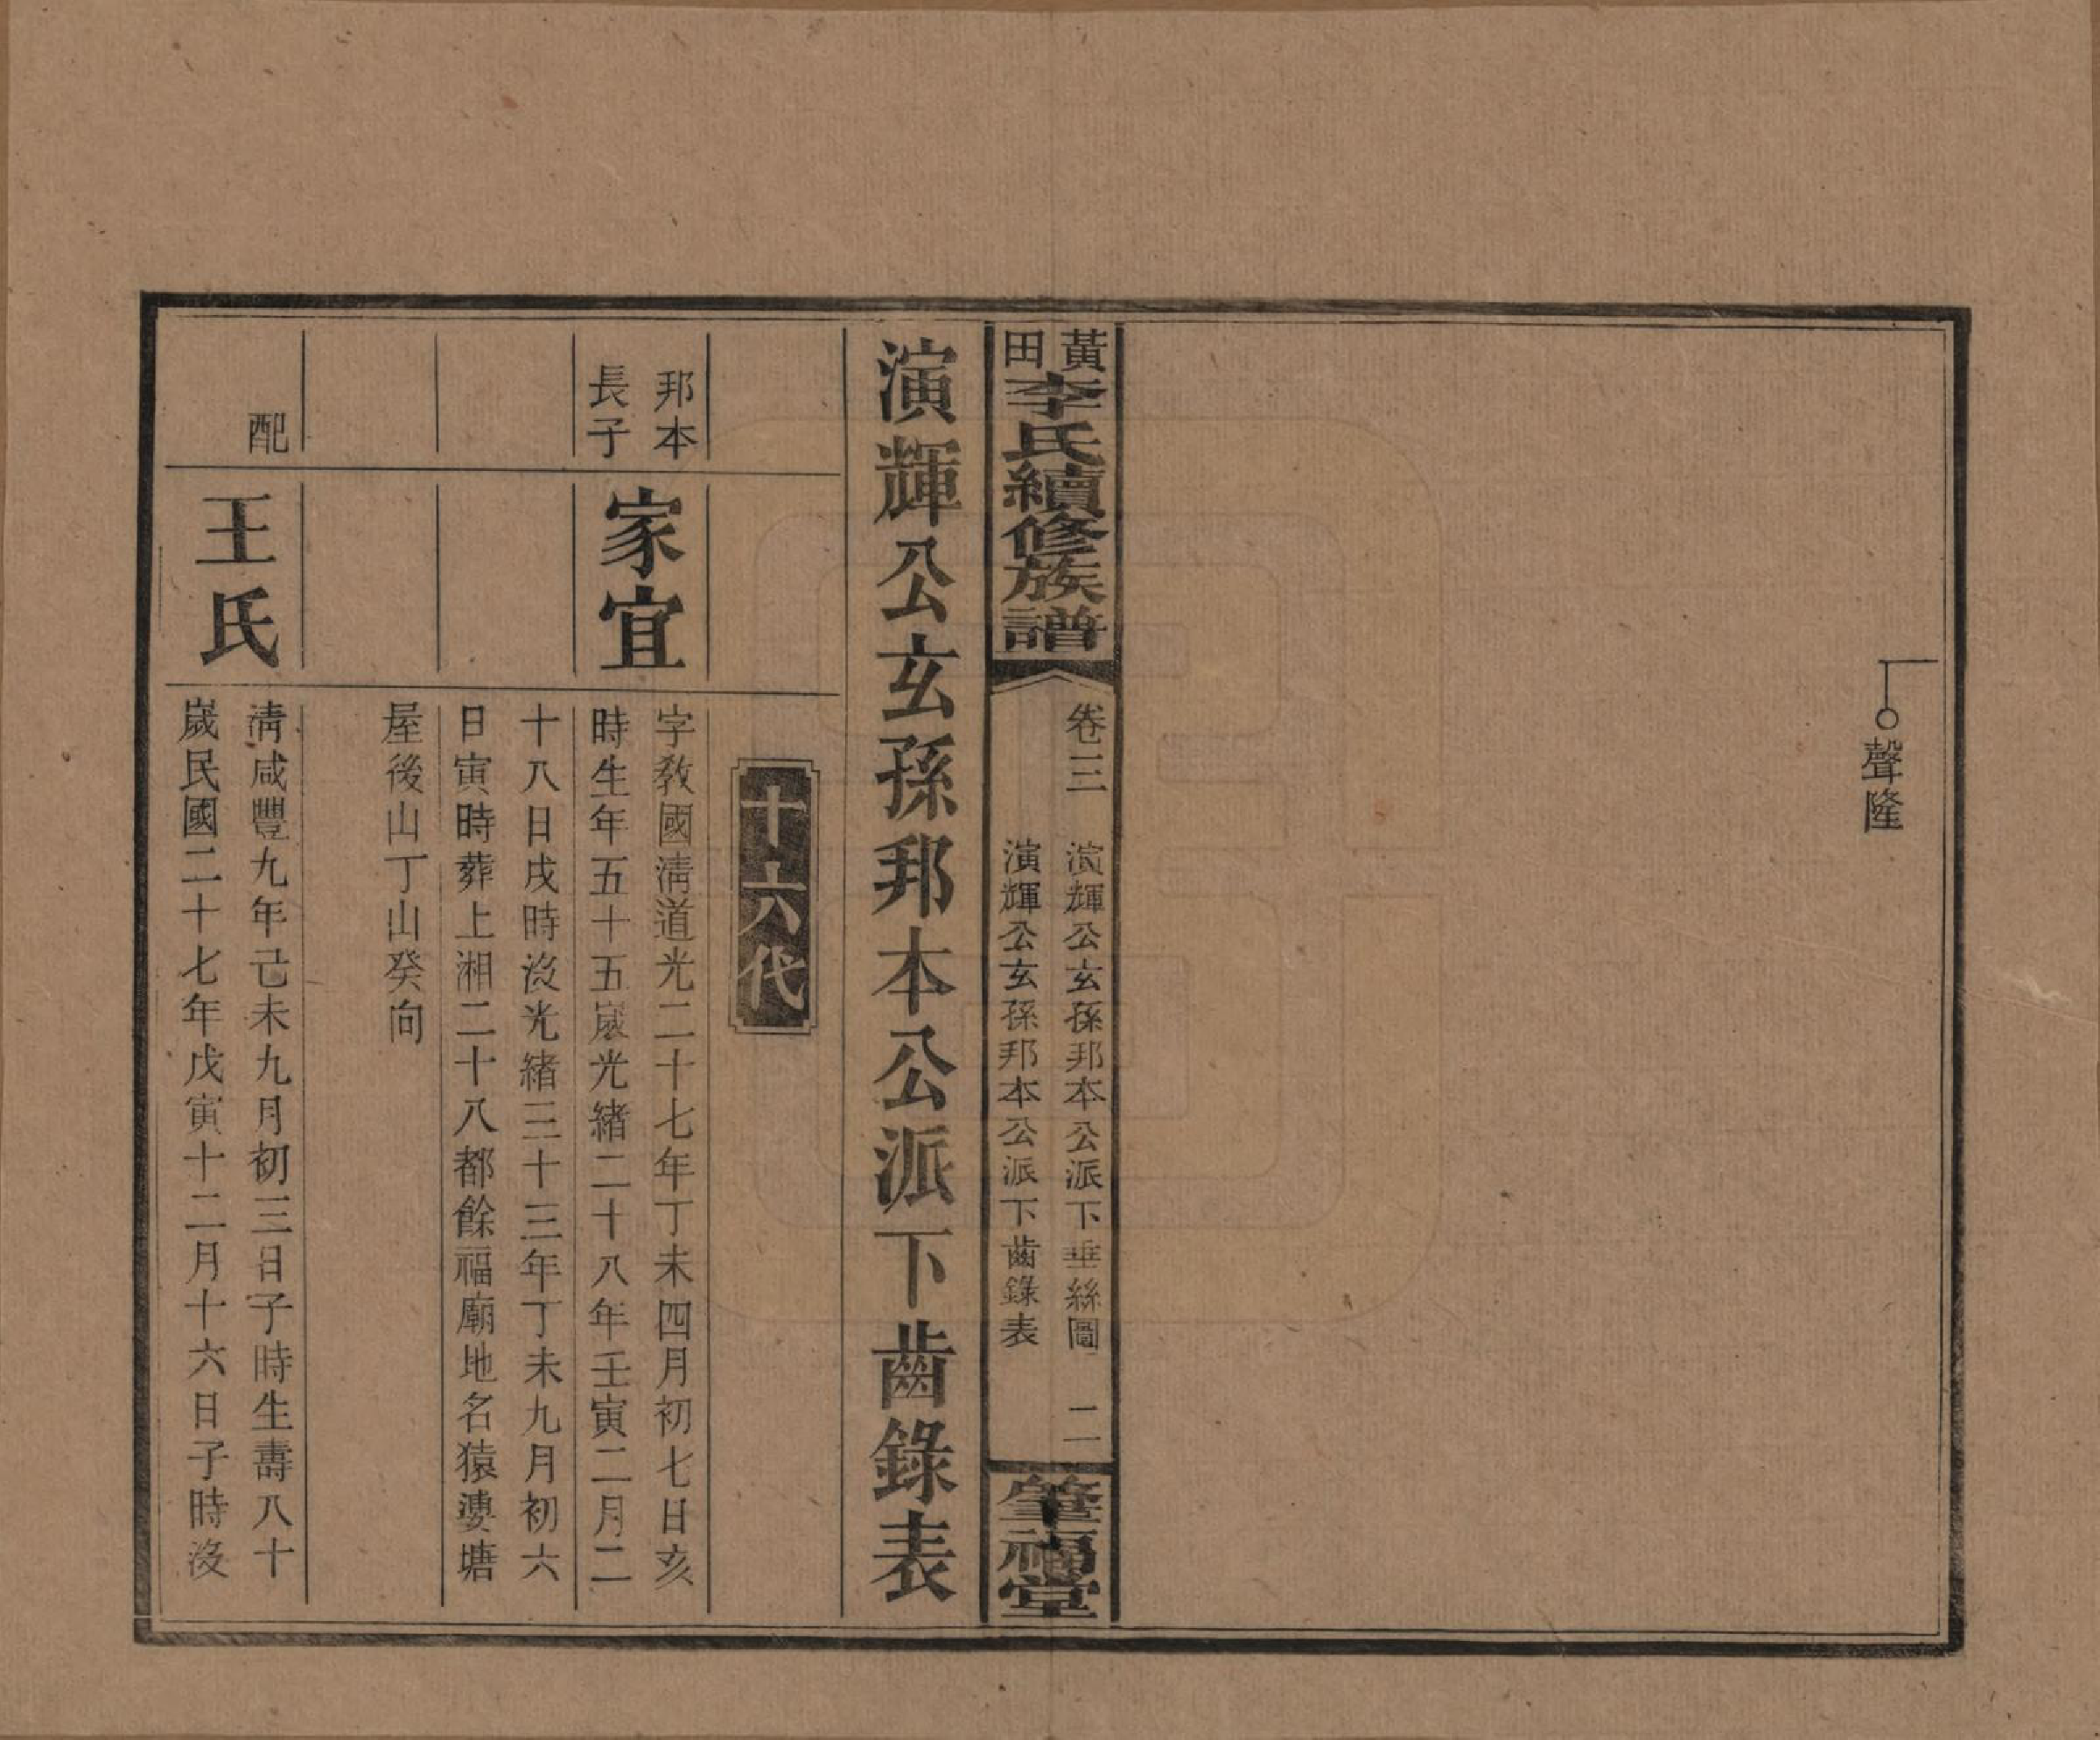 聲隆
黃田李氏續修族譜
卷三
演輝公玄孫邦本公派下垂絲圖
二
演輝公玄孫邦本公派下齒錄表
肇福堂
演輝公玄孫邦本公派下齒錄表
十六代
邦本
長子
家宜
字教國淸道光二十七年丁未四月初七日亥
時生年五十五歲光緒二十八年壬寅二月二
十八日戌時沒光緒三十三年丁未九月初六
日寅時葬上湘二十八都餘福廟地名猿塘
屋後山丁山癸向
配
王氏
淸咸豐九年己未九月初三日子時生壽八十
歲民國二十七年戊寅十二月十六日子時沒